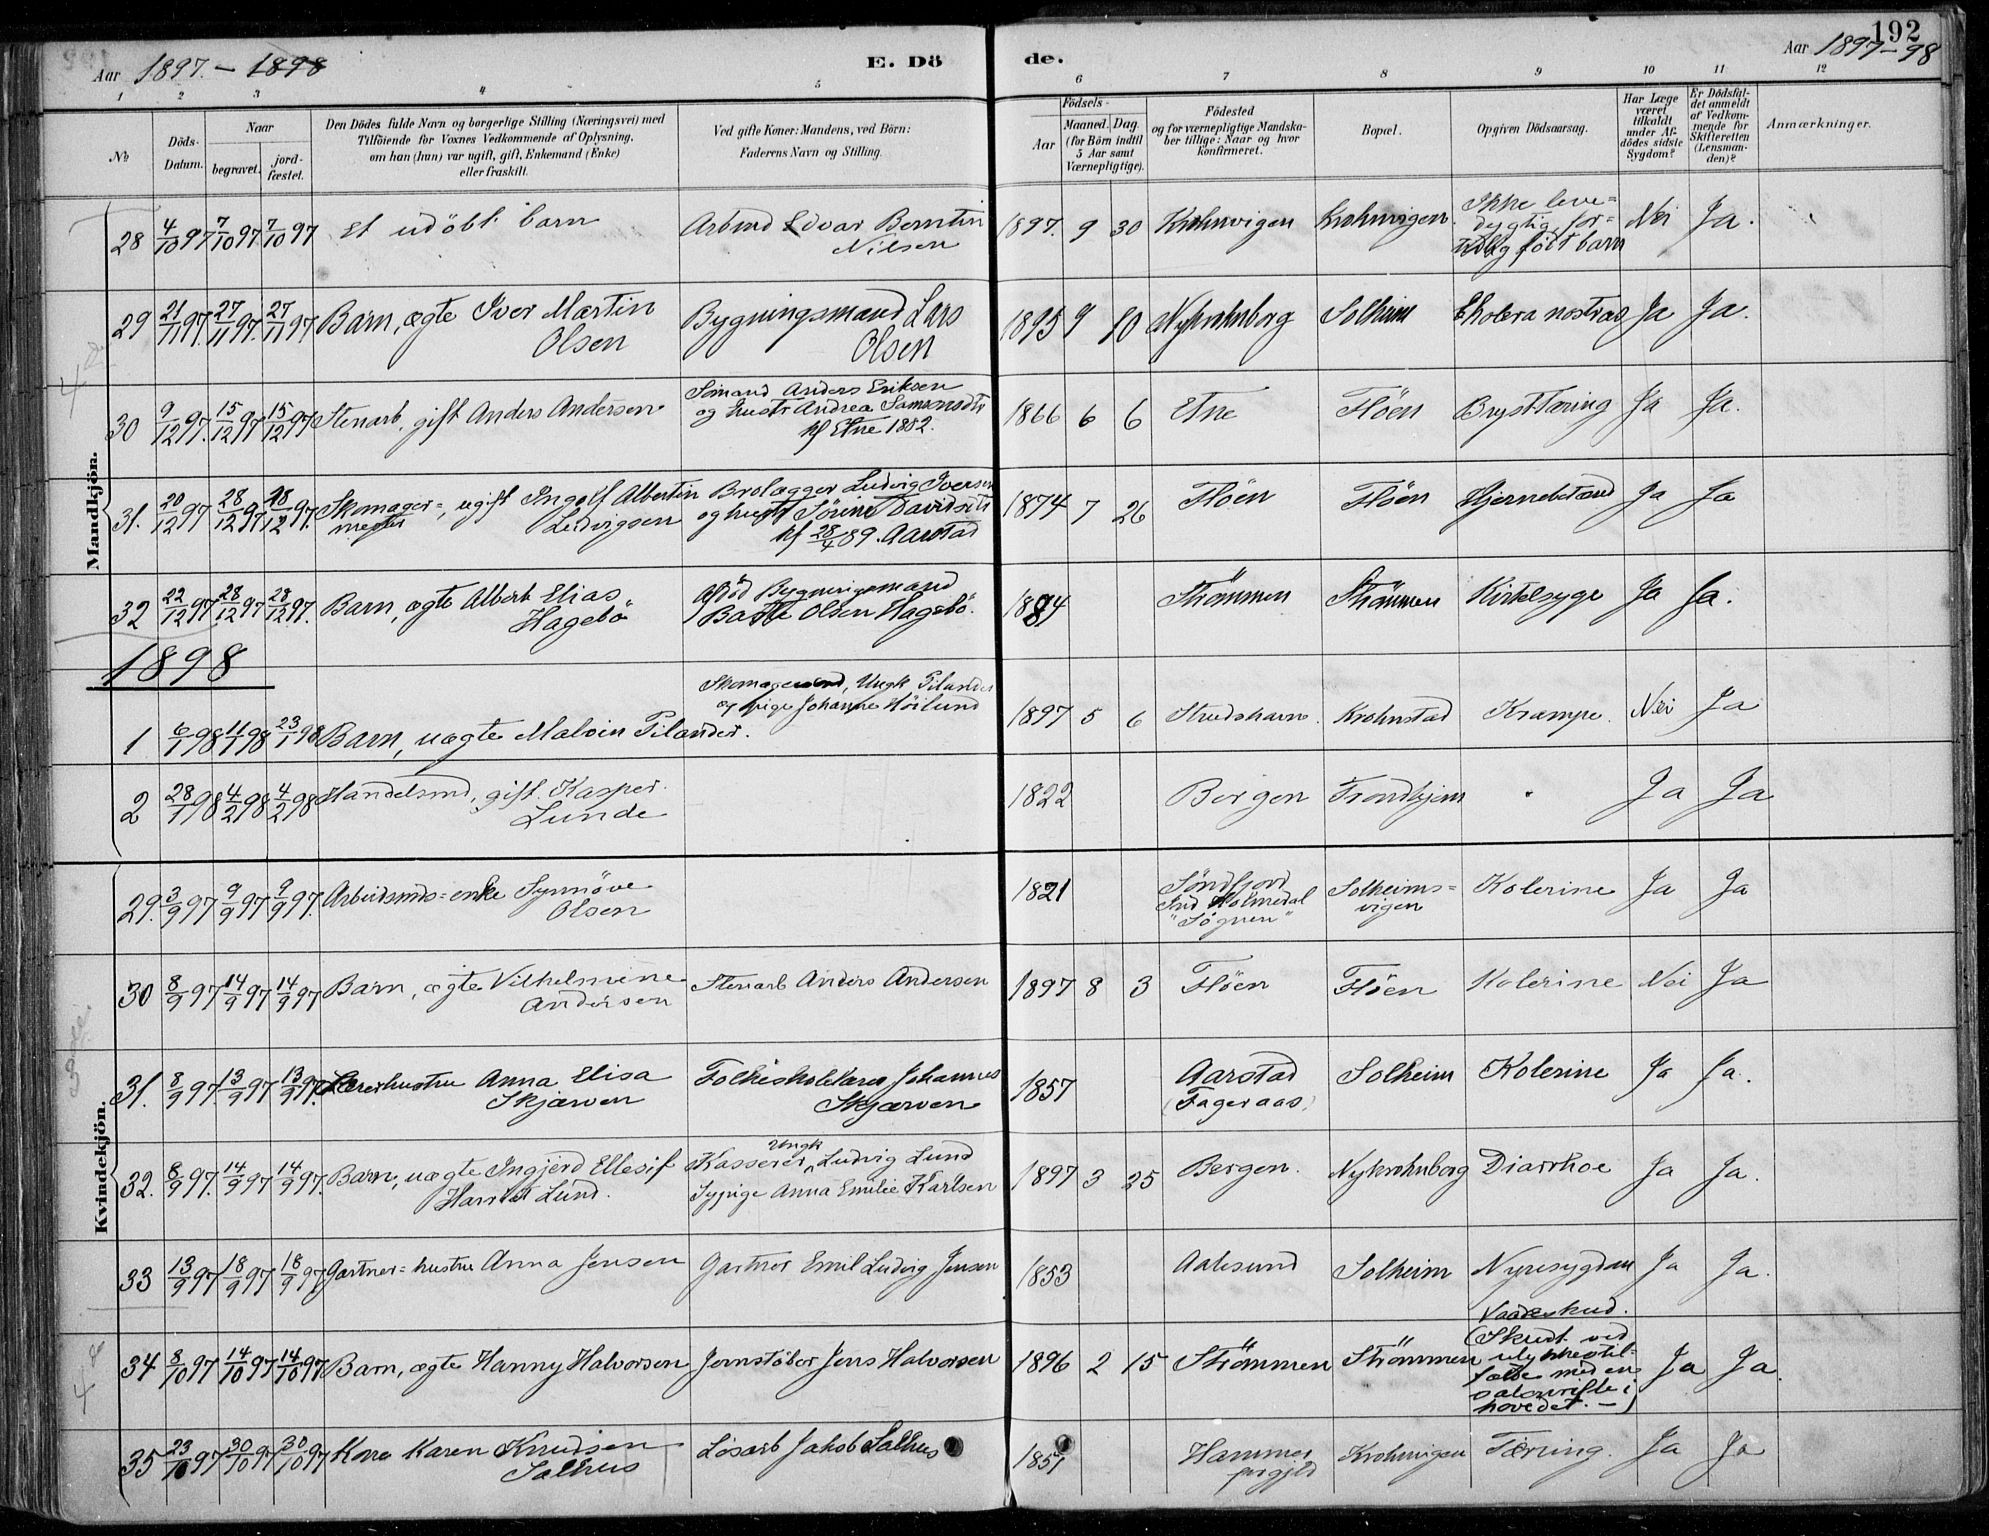 192
Aar 1897. - 1898 E. Dö de. Aar 1897-98
1 2 3 4 5 6 7 8 9 10 11 12
№ Döds-Datum. Naar begravet. jord-fæstet. Den Dödes fulde Navn og borgerlige Stilling (Næringsvei) med Tilföiende for Voxnes Vedkommende af Oplysning, om han (hun) var ugift, gift, Enkemand (Enke) eller fraskilt. Ved gifte Koner: Mandens, ved Börn: Faderens Navn og Stilling. Födsels- Aar Maaned. Dag (for Börn indtil 5 Aar samt Værnepligtige). Födested og for værnepligtige Mandska-ber tillige: Naar og hvor konfirmeret. Bopæl. Opgiven Dödsaarsag. Har Læge været tilkaldt under Af-dödes sidste Sygdom? Er Dödsfal-det anmeldt af Vedkom-mende for Skifteretten (Lensman-den)? Anmærkninger.
Mandkjön.
28 4/10 97 7/10 97 7/10 97 Et udöbt barn Arbmd Edvar Berntin Nilsen 1897. 9 30 Krohnvigen Krohnvigen. Ikke leve=dygtig, for=tidlig født barn Nei Ja.
29 21/11 97. 27/11 97. 27/11 97 Barn, ægte Iver Martin Olsen Bygningsmand Lars Olsen 1895 9 10 Nykrohnborg Solheim Cholera nostras Ja Ja.
30 9/12 97. 15/12 97 15/12 97 Stenarb, gift Anders Andersen Sömand Anders Eriksen og hustr Andrea Samsonsdtr kf Etne 1882. 1866 6 6 Etne Flöen Brysttæring Ja Ja.
31. 20/12 97 28/12 97 28/12 97. Skomager=mester, ugift Ingolf Albertin Ludvigsen Brolægger Ludvig Iversen og hustr Sörine Davidsdtr kf 28/4 89. Aarstad 1874 7 26 Flöen Flöen Hjernebetænd Ja Ja
32 22/12 97 28/12 97 28/12 97. Barn, ægte Albert Elias Hagebö afdöd Bygningsmand Baste Olsen Hagebö. 1884 Strömmen Strömmen Kirtelsyge Ja Ja.
1898
1 6/1 98 11/1 98 23/1 98 Barn, uægte Malvin Pilander. Skomagersvend, Ungk Pilander og pige Johanne Höilund 1897 5 6 Strudshavn. Krohnstad Krampe. Nei Ja
2 28/1 98 4/2 98 4/2 98 Handelsmd, gift Kasper Lunde 1822 Bergen Trondhjem Ja Ja
Kvindekjön.
29. 3/9 97 9/9 97 9/9 97. Arbeidsmds=enke Synnöve Olsen 1821 Söndfjord Ind Holmedal "Sögnen" Solheims=vigen Kolerine Ja Ja
30 8/9 97 14/9 97 14/9 97 Barn, ægte Vilhelmine Andersen Stenarb Anders Andersen 1897 8 3 Flöen Flöen Kolerine Nei Ja
31. 8/9 97. 13/9 97 13/9 97. Lærerhustru Anna Elisa Skjærven Folkeskolelærer Johannes Skjærven 1857 Aarstad (Fageraas) Solheim Kolerine Ja Ja.
32. 8/9 97. 14/9 97 14/9 97. Barn, uægte Ingjerd Ellesif Harriet Lund. Kasserer, Ungk Ludvig Lund Sypige Anna Emilie Karlsen 1897 3 25 Bergen. Nykrohnborg Diarrhoe Ja Ja.
33 13/9 97 18/9 97 18/9 97 Gartner=hustru Anna Jensen Gartner Emil Ludvig Jensen 1853 Aalesund Solheim Nyresygdom Ja Ja.
34 8/10 97 14/10 97 14/10 97 Barn, ægte Hanny Halvorsen Jernstöber Jens Halvorsen 1896 2 15 Strömmen Strömmen Vaadeskud. (Skudt ved ulykkestil-fælde med en salonrifle i hovedet. -) Ja Ja.
35 23/10 97 30/10 97 30/10 97 Kone Karen Knudsen Salhus Lösarb Jakob Salhus 1851 Hammer prgjld Krohnvigen Tæring. Ja Ja